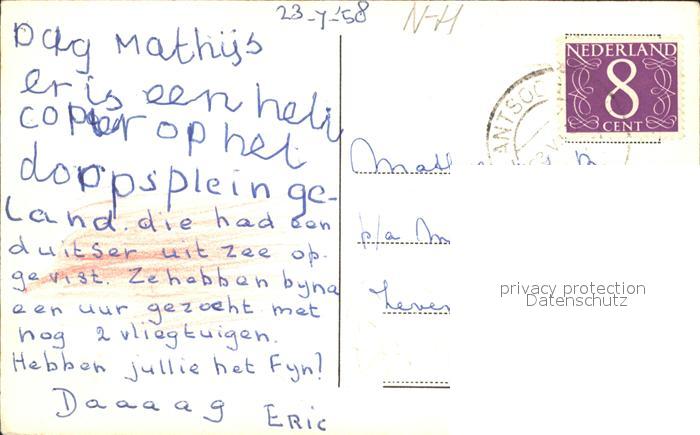 23-7-'58
N-H
Dag Mathijs
er is een heli
copter op het
dorpsplein ge-
land. die had een
duitser uit zee op-
gevist. Ze hebben byna
een uur gezocht met
nog 2 vliegtuigen.
Hebben jullie het Fyn?
Daaaag
Eric
NEDERLAND
8
CENT
ANTSO
Math
p/a M
Leven
privacy protection
Datenschutz